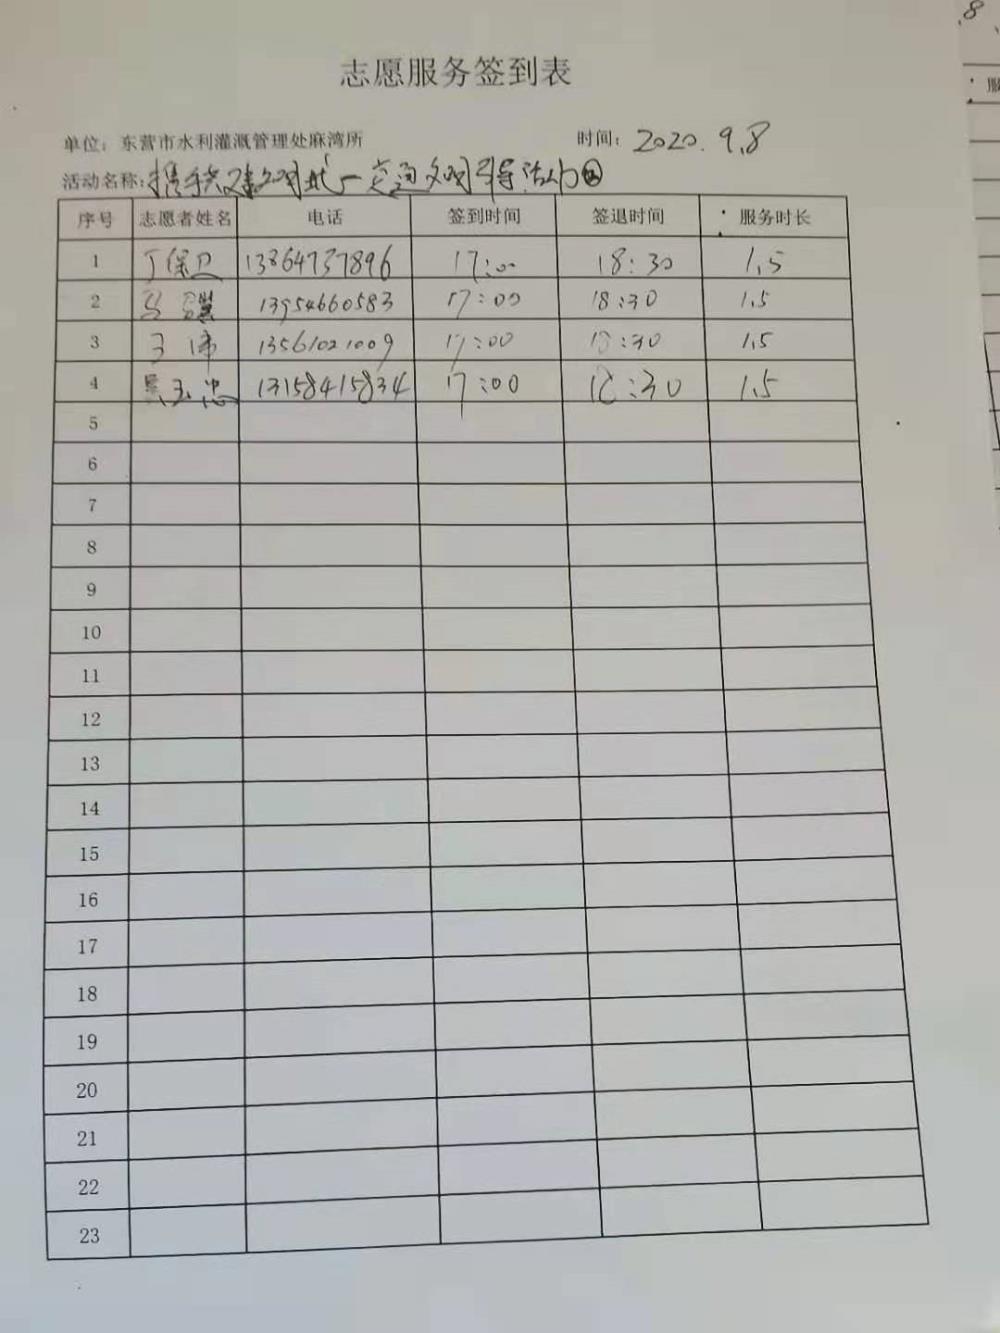 志愿服务签到表
单位：东营市水利灌溉管理处麻湾所 时间：2020.9.8
活动名称：携手共建文明城一交通文明引导活动
序号 志愿者姓名 电话 签到时间 签退时间 服务时长
1 丁保卫 13864737896 17:00 18:30 1.5
2 马 13954660583 17:00 18:30 1.5
3 王伟 13561021009 17:00 18:30 1.5
4 吴玉忠 13158415834 17:00 18:30 1.5
5
6
7
8
9
10
11
12
13
14
15
16
17
18
19
20
21
22
23
8
服